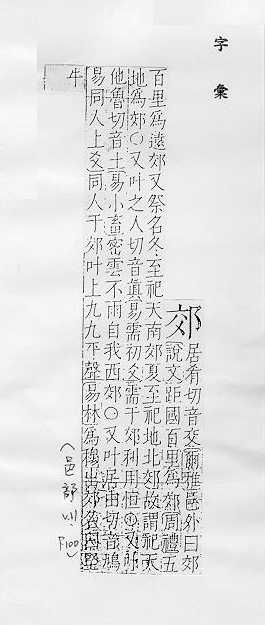 字彙
郊
居肴切音交爾雅邑外曰郊
說文距國百里爲郊周禮五
百里爲遠郊又祭名冬至祀天南郊夏至祀地北郊故謂祀天
地爲郊○又叶之人切音眞易需初爻需于郊利用恒○又
他魯切音土易小畜密雲不雨自我西郊○又叶居由切音鳩
易同人上爻同人于郊叶上九九平聲易林爲出郊
牛
(邑部 v.11 P100)